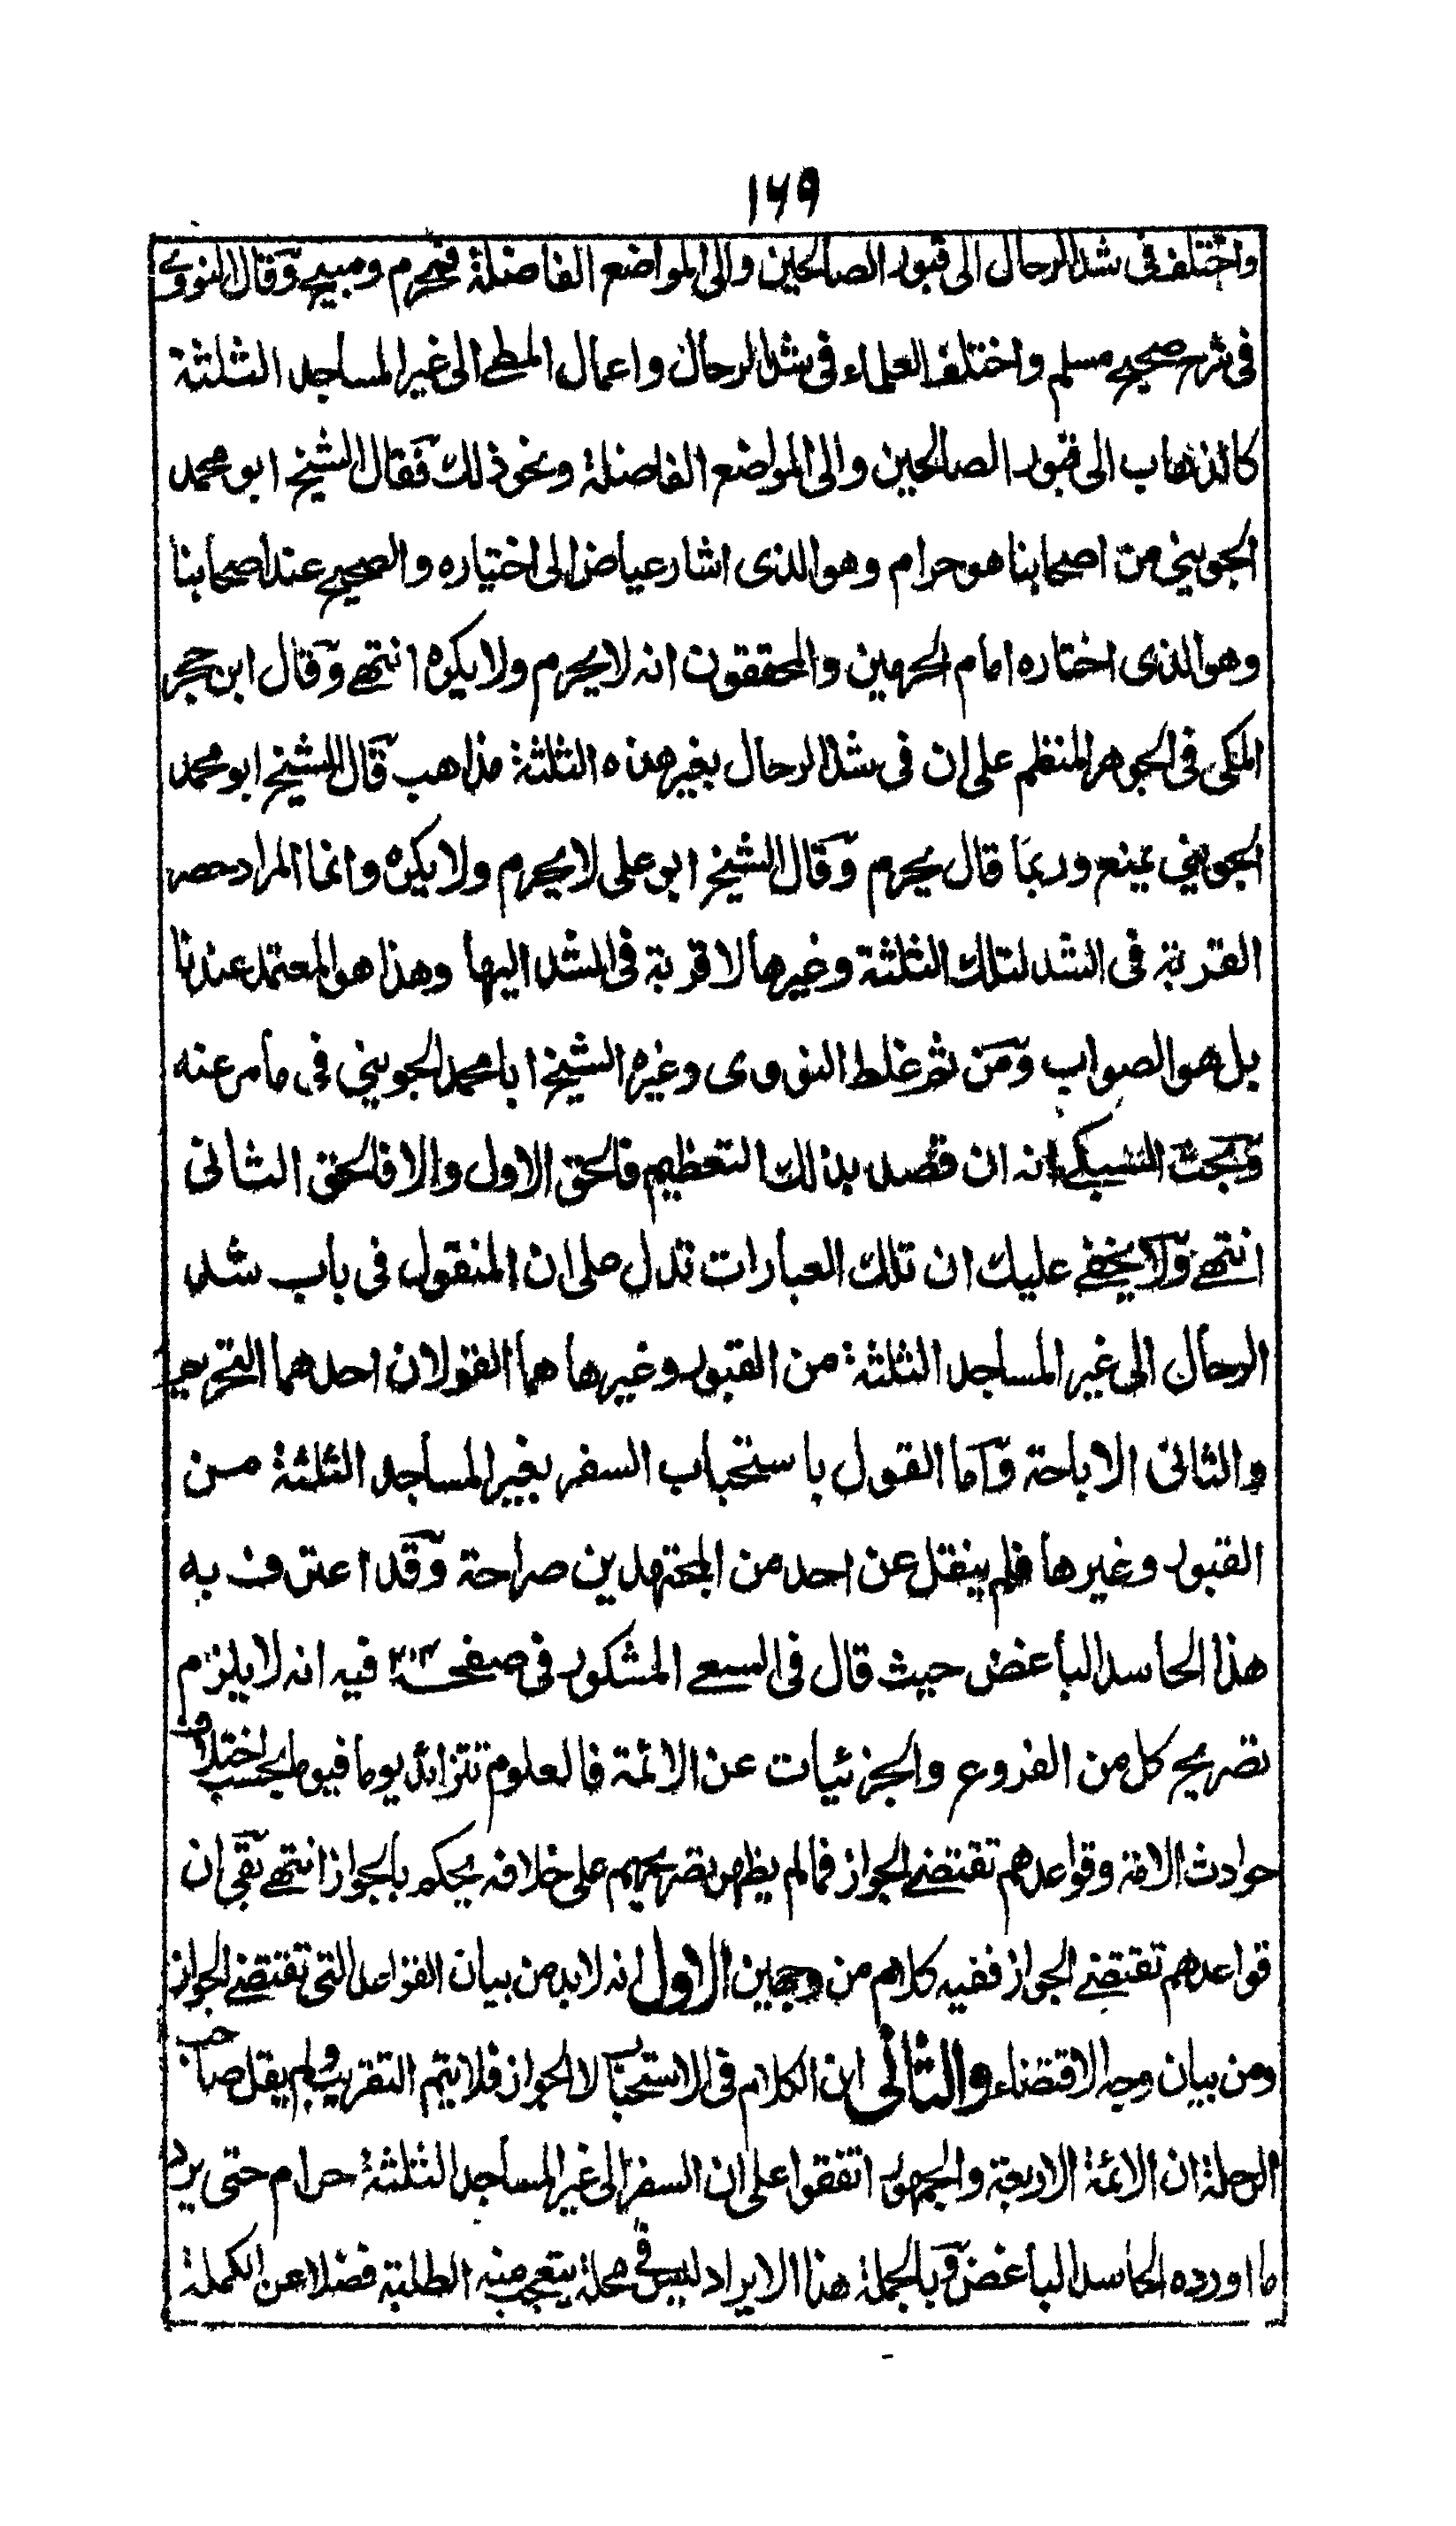 ١٦٩
واختلف فى شد الرحال الى قبور الصالحين والى المواضع الفاضلة فمحرم ومبيح وقال النووى
فى شرح صحيح مسلم واختلف العلماء فى شد الرحال واعمال المطى الى غير المساجد الثلثة
كالذهاب الى قبور الصالحين والى المواضع الفاضلة ونحو ذلك فقال الشيخ ابو محمد
الجوينى من اصحابنا هو حرام وهو الذى اشار عياض الى اختياره والصحيح عند اصحابنا
وهو الذى اختاره امام الحرمين والمحققون انه لا يحرم ولا يكره انتهى وقال ابن حجر
المكى فى الجوهر المنظم على ان فى شد الرحال بغير هذه الثلثة مذاهب قال الشيخ ابو محمد
الجوينى يمنع وربما قال يحرم وقال الشيخ ابو على لا يحرم ولا يكره وانما المراد حصر
القربة فى الشد لتلك الثلثة وغيرها لا قربة فى الشد اليها وهذا هو المعتمد عندنا
بل هو الصواب ومن ثم غلط النووى وغيره الشيخ ابا محمد الجوينى فى ما مر عنه
وبحث السبكى انه ان قصد بذلك التعظيم فالحق الاول والا فالحق الثانى
انتهى ولا يخفى عليك ان تلك العبارات تدل على ان المنقول فى باب شد
الرحال الى غير المساجد الثلثة من القبور وغيرها هما القولان احدهما التحريم
والثانى الاباحة واما القول باستحباب السفر بغير المساجد الثلثة من
القبور وغيرها فلم ينقل عن احد من المجتهدين صراحة وقد اعترف به
هذا الحاسد الباغض حيث قال فى السعى المشكور فى صفحة فيه انه لا يلزم
تصريح كل من الفروع والجزئيات عن الائمة فالعلوم تتزائد يوما فيوما بحسب اختلاف
حوادث الامة وقواعدهم تقتضى الجواز فما لم يظهر تصريحهم على خلافه يحكم بالجواز انتهى بقى ان
قواعدهم تقتضى الجواز ففيه كلام من وجهين الاول انه لا بد من بيان القواعد التى تقتضى الجواز
ومن بيان وجه الاقتضاء والثانى ان الكلام فى الاستحباب لا الجواز فلا يتم التقريب ولم يقل صاحب
الرحلة ان الائمة الاربعة والجمهور اتفقوا على ان السفر الى غير المساجد الثلثة حرام حتى يرد
ما اورده الحاسد الباغض وبالجملة هذا الايراد ليس فى محله يتعجب منه الطلبة فضلا عن الكملة